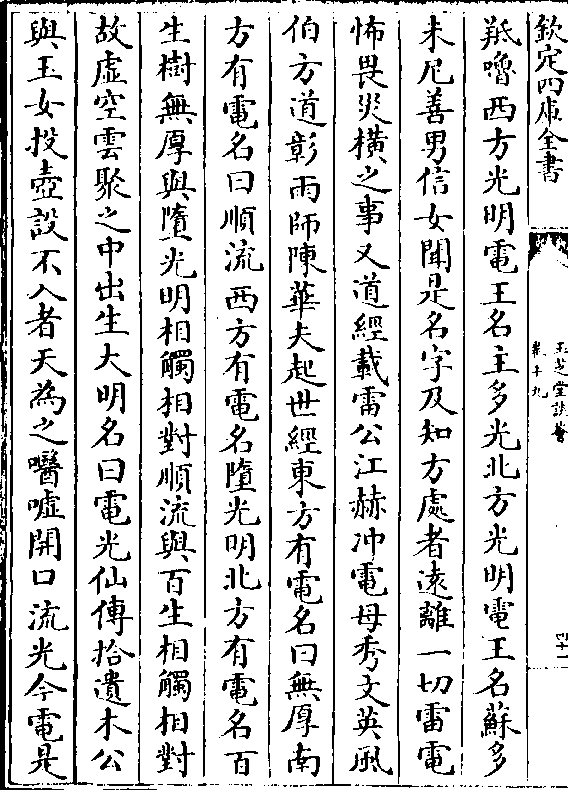 欽定四庫全書
玉芝堂談薈
卷十九
羝嚕西方光明電王名主多光北方光明電王名蘇多
末尼善男信女聞是名字及知方處者遠離一切雷電
怖畏災橫之事又道經載雷公江赫冲電母秀文英風
伯方道彰雨師陳華夫起世經東方有電名曰無厚南
方有電名曰順流西方有電名墮光明北方有電名百
生樹無厚與墮光明相觸相對順流與百生相觸相對
故虛空雲聚之中出生大明名曰電光仙傳拾遺木公
與玉女投壺設不入者天為之囈噓開口流光今電是